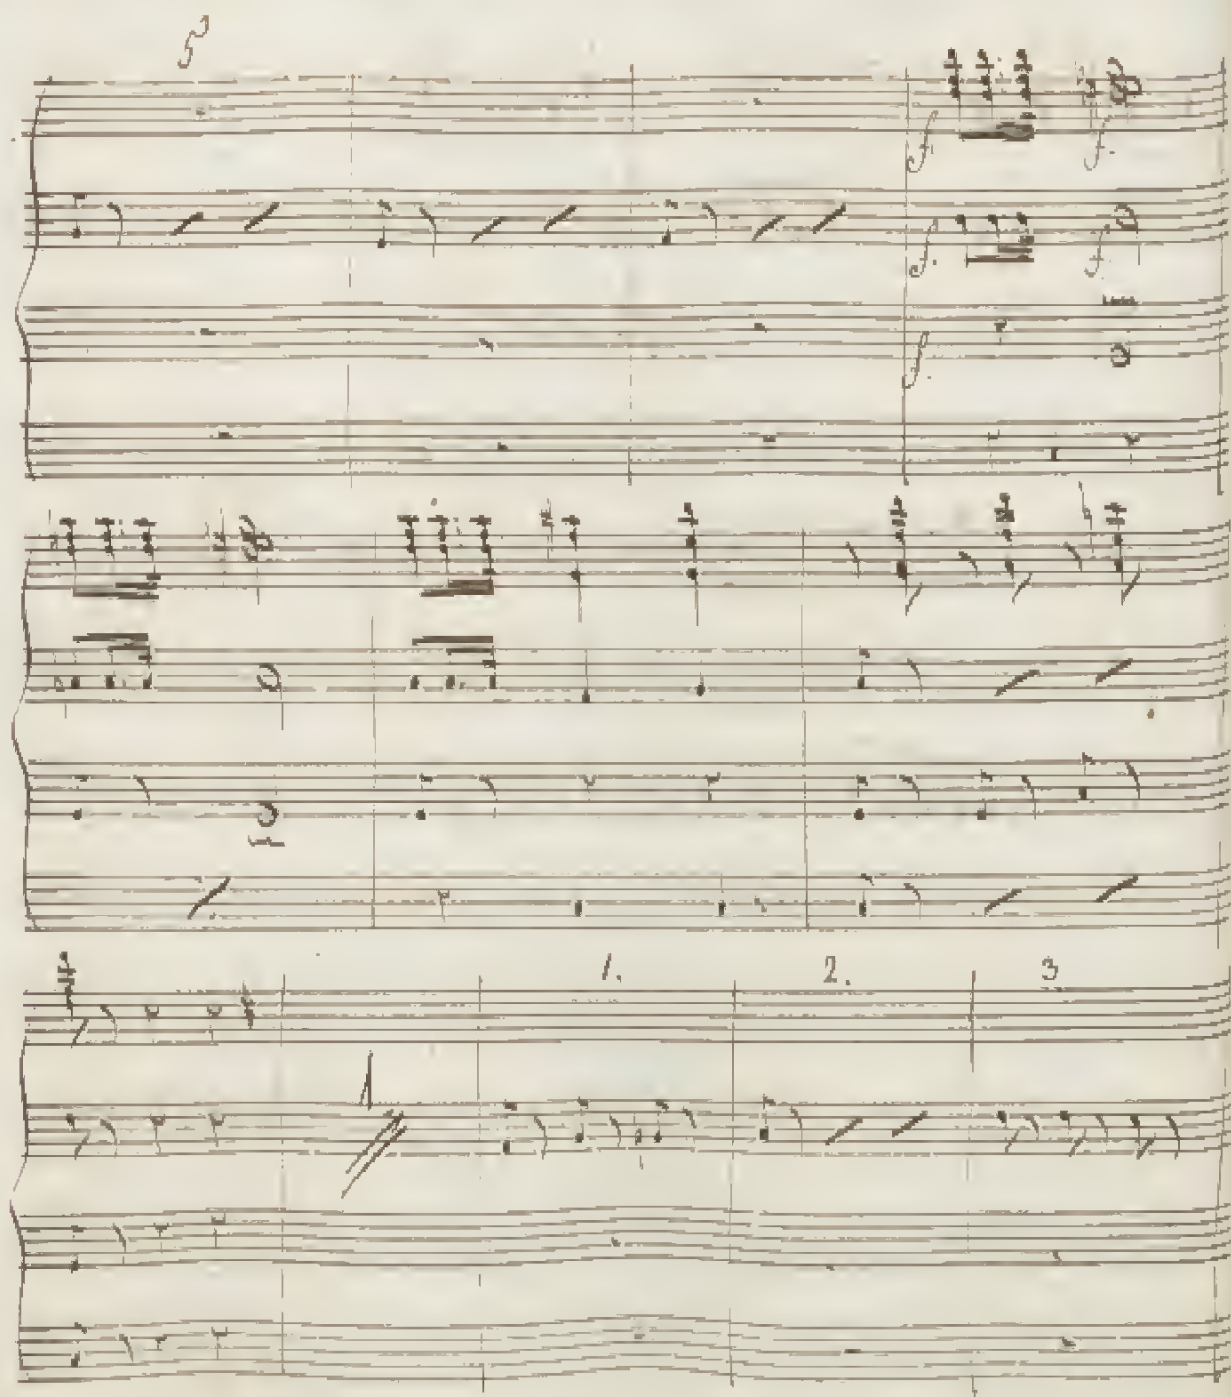 5
f. f.
f. f.
f.
1
1. 2. 3